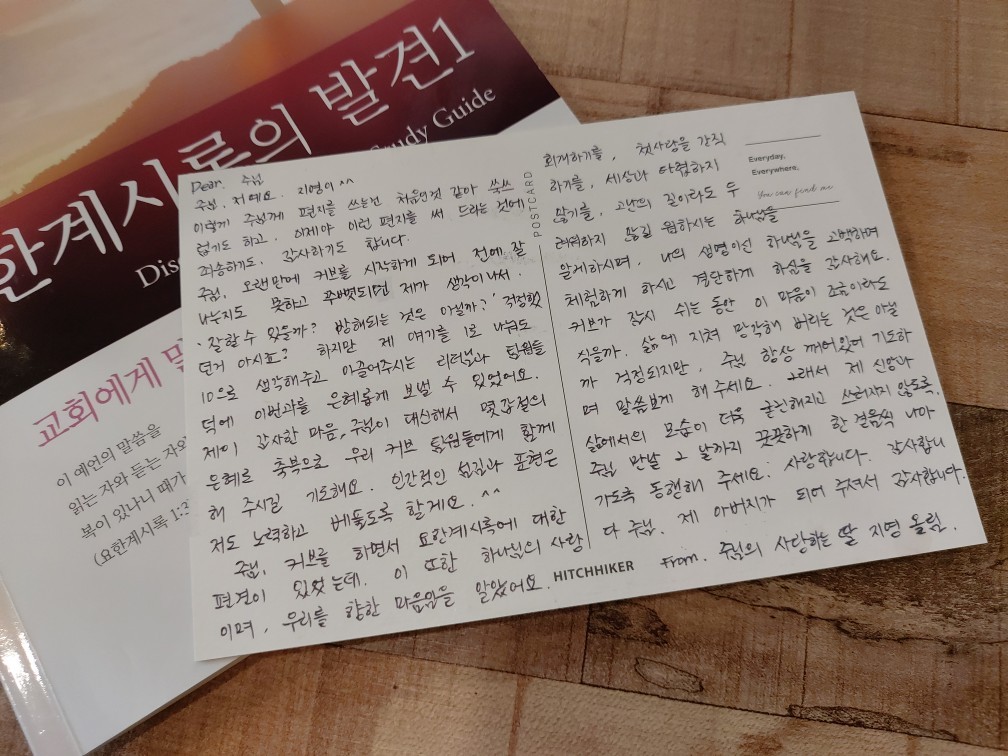 한계시록의 발견1
Study Guide
Dis
교회에게 말
이 예언의 말씀을
읽는 자와 듣는 자와
복이 있나니 때가
(요한계시록 1:3
Dear. 주님
주님. 저예요. 지영이^^
이렇게 주님께 편지를 쓰는건 처음인것 같아 쑥쓰
럽기도 하고. 이제야 이런 편지를 써 드리는 것에
죄송하기도. 감사하기도 합니다.
주님, 오랜만에 커브를 시작하게 되어 전에 잘
나누지도 못하고 꾸벅되던 제가 생각이나서.
'잘할수 있을까? 방해되는 것은 아닐까?' 걱정했
던거 아시죠? 하지만 제 얘기를 1로 나눠도
10으로 생각해주고 이끌어주시는 리더님과 팀원들
덕에 이번과를 은혜롭게 보낼 수 있었어요.
제이 감사한 마음, 주님이 대신해서 몇갑절의
은혜로 축복으로 우리 커브 팀원들에게 함께
해 주시길 기도해요. 인간적인 섬김과 표현은
저도 노력하고 베풀도록 할게요. ^^
주님, 커브를 하면서 요한계시록에 대한
편견이 있었는데. 이 또한 하나님의 사랑
이며, 우리를 향한 마음임을 알았어요.
POSTCARD
HITCHHIKER
Everyday,
Everywhere,
You can find me
회개하기를, 첫사랑을 간직
하기를, 세상과 타협하지
않기를, 고난의 길이라도 두
려워하지 않길 원하시는 하나님을
알게하시며, 나의 생명이신 하나님을 고백하며
체험하게 하시고 결단하게 하심을 감사해요.
커브가 잠시 쉬는 동안 이 마음이 조금이라도
식을까. 삶에 지쳐 망각해 버리는 것은 아닐
까 걱정되지만, 주님 항상 깨어있어 기도하
며 말씀보게 해 주세요. 그래서 제 신앙과
삶에서의 모습이 더욱 굳건해지고 쓰러지지 않도록.
주님 만날 그 날까지 꿋꿋하게 한 걸음씩 나아
가도록 동행해 주세요. 사랑합니다. 감사합니
다 주님. 제 아버지가 되어 주셔서 감사합니다.
From. 주님의 사랑하는 딸 지영 올림.